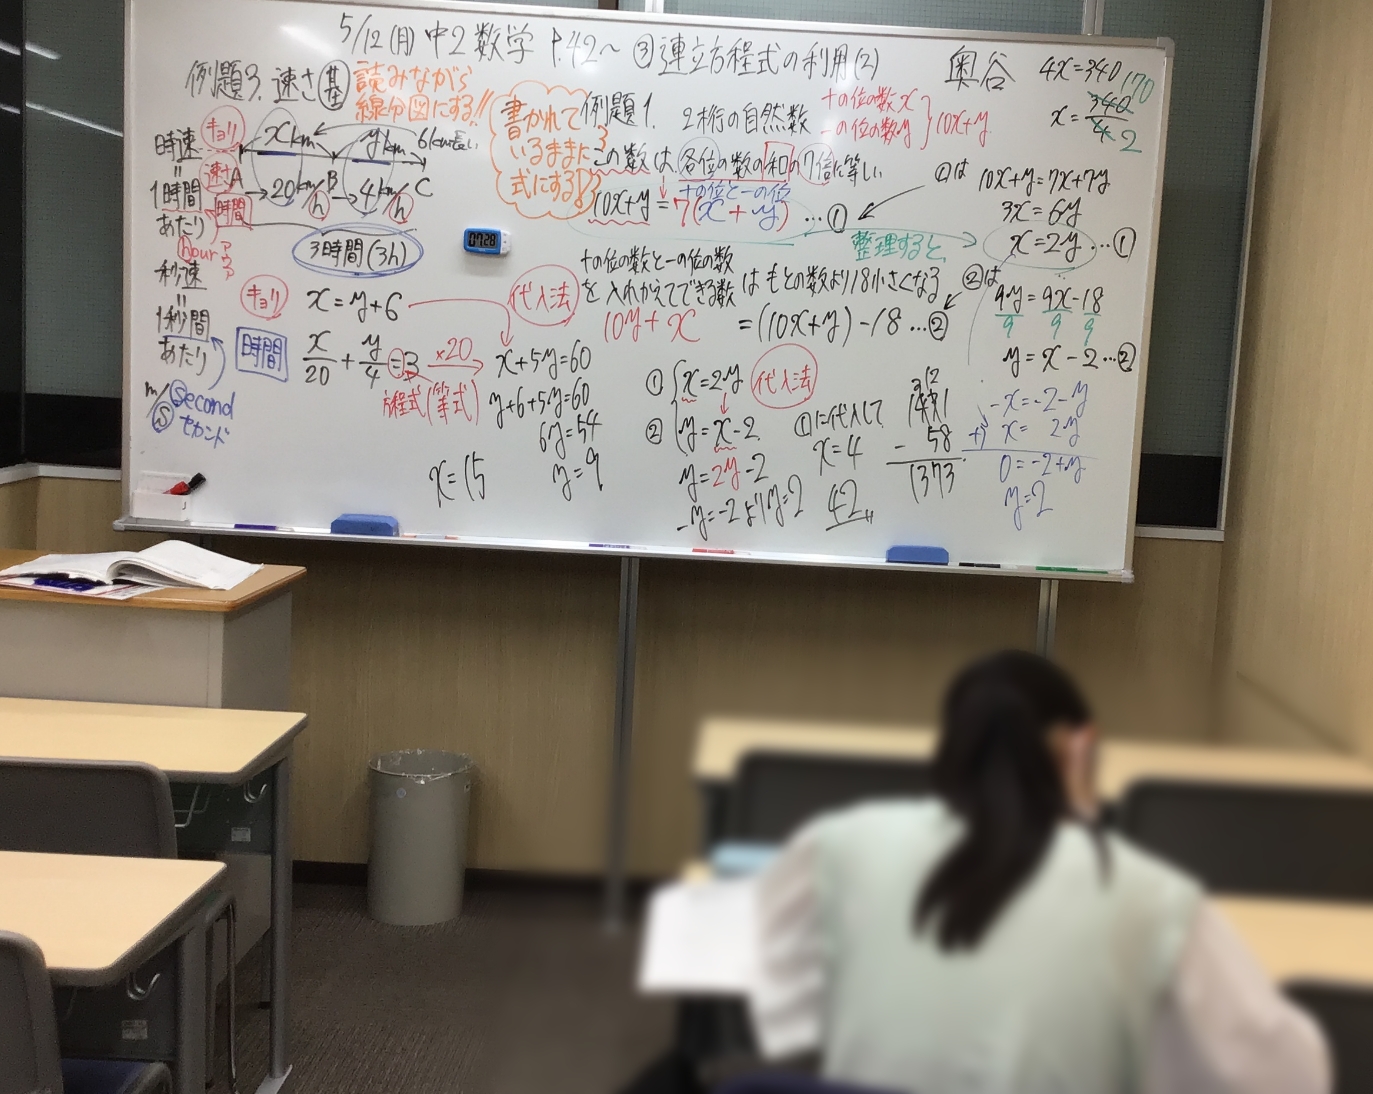 5/12(月) 中2 数学 P.42～ ③連立方程式の利用(2)
奥谷
例題3. 速さ 基
読みながら
線分図にする!!
時速
〃
1時間
あたり
hour アワァ
秒速
〃
1秒間
あたり
m/s
second
セカンド
キョリ
xkm
ykm
6km長い
速さ
A
B
C
→20km/h
→4km/h
時間
3時間(3h)
キョリ
x=y+6
時間
x/20+y/4=3
×20
方程式(等式)
代入法
x+5y=60
y+6+5y=60
6y=54
y=9
x=15
書かれて
いるままに
式にする!!
07:28
例題1.
2桁の自然数
十の位の数x
一の位の数y
10x+y
この数は、各位の数の和の7倍に等しい
十の位と一の位
10x+y=7(x+y) …①
十の位の数と一の位の数
を入れかえてできる数
はもとの数より18小さくなる
10y+x
=(10x+y)-18 …②
①
x=2y
②
y=x-2
代入法
y=2y-2
-y=-2よりy=2
①に代入して
x=4
42
1431
- 58
1373
4x=340
x=340/4
170
2
①は 10x+y=7x+7y
3x=6y
整理すると
x=2y …①
②は
9y=9x-18
9 9 9
y=x-2 …②
-x=-2-y
+) x= 2y
0=-2+y
y=2